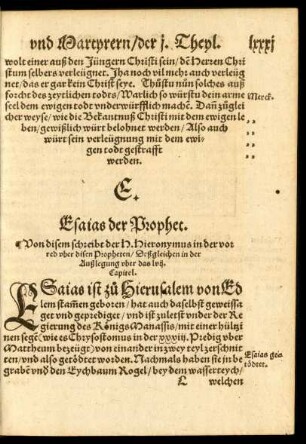 vnd Martyrern/der j. Theyl. lxxxj
wolt einer auß den Jüngern Christi sein/ dẽ Herren Chri
stum selbers verleügnet. Jha noch vil mehr auch verleüg
net/ das er gar kein Christ seye. Thůstu nůn solches auß
forcht des zeytlichen todts/ Warlich so würstu dein arme
seel dem ewigen todt vnderwürfflich machẽ. Dañ zůglei
cher weyse/ wie die Bekantnuß Christi mit dem ewigen le
ben/ gewißlich würt belohnet werden/ Also auch
würt sein verleügnung mit dem ewi-
gen todt gestrafft
werden.
Merck.
E.
Esaias der Prophet.
¶Von disem schreibt der H. Hieronymus in der vor
red vber disen Propheten/ Deßgleichen in der
Außlegung vber das lvij.
Capitel.
ESaias ist zů Hierusalem von Ed
lem stam̃en geboren/ hat auch daselbst geweissa
get vnd geprediget/ vnd ist zuletst vnder der Re
gierung des Königs Manassis/ mit einer hülzi
nen segẽ (wie es Chrysostomus in der xxxiij. Predig vber
Mattheum bezeügt) von einander in zwey teyl zerschnit
ten/ vnd also getödtet worden. Nachmals haben sie jn be
grabẽ vnd den Eychbaum Rogel/ bey dem wasserteych/
Esaias gee
tödtet.
L welchen